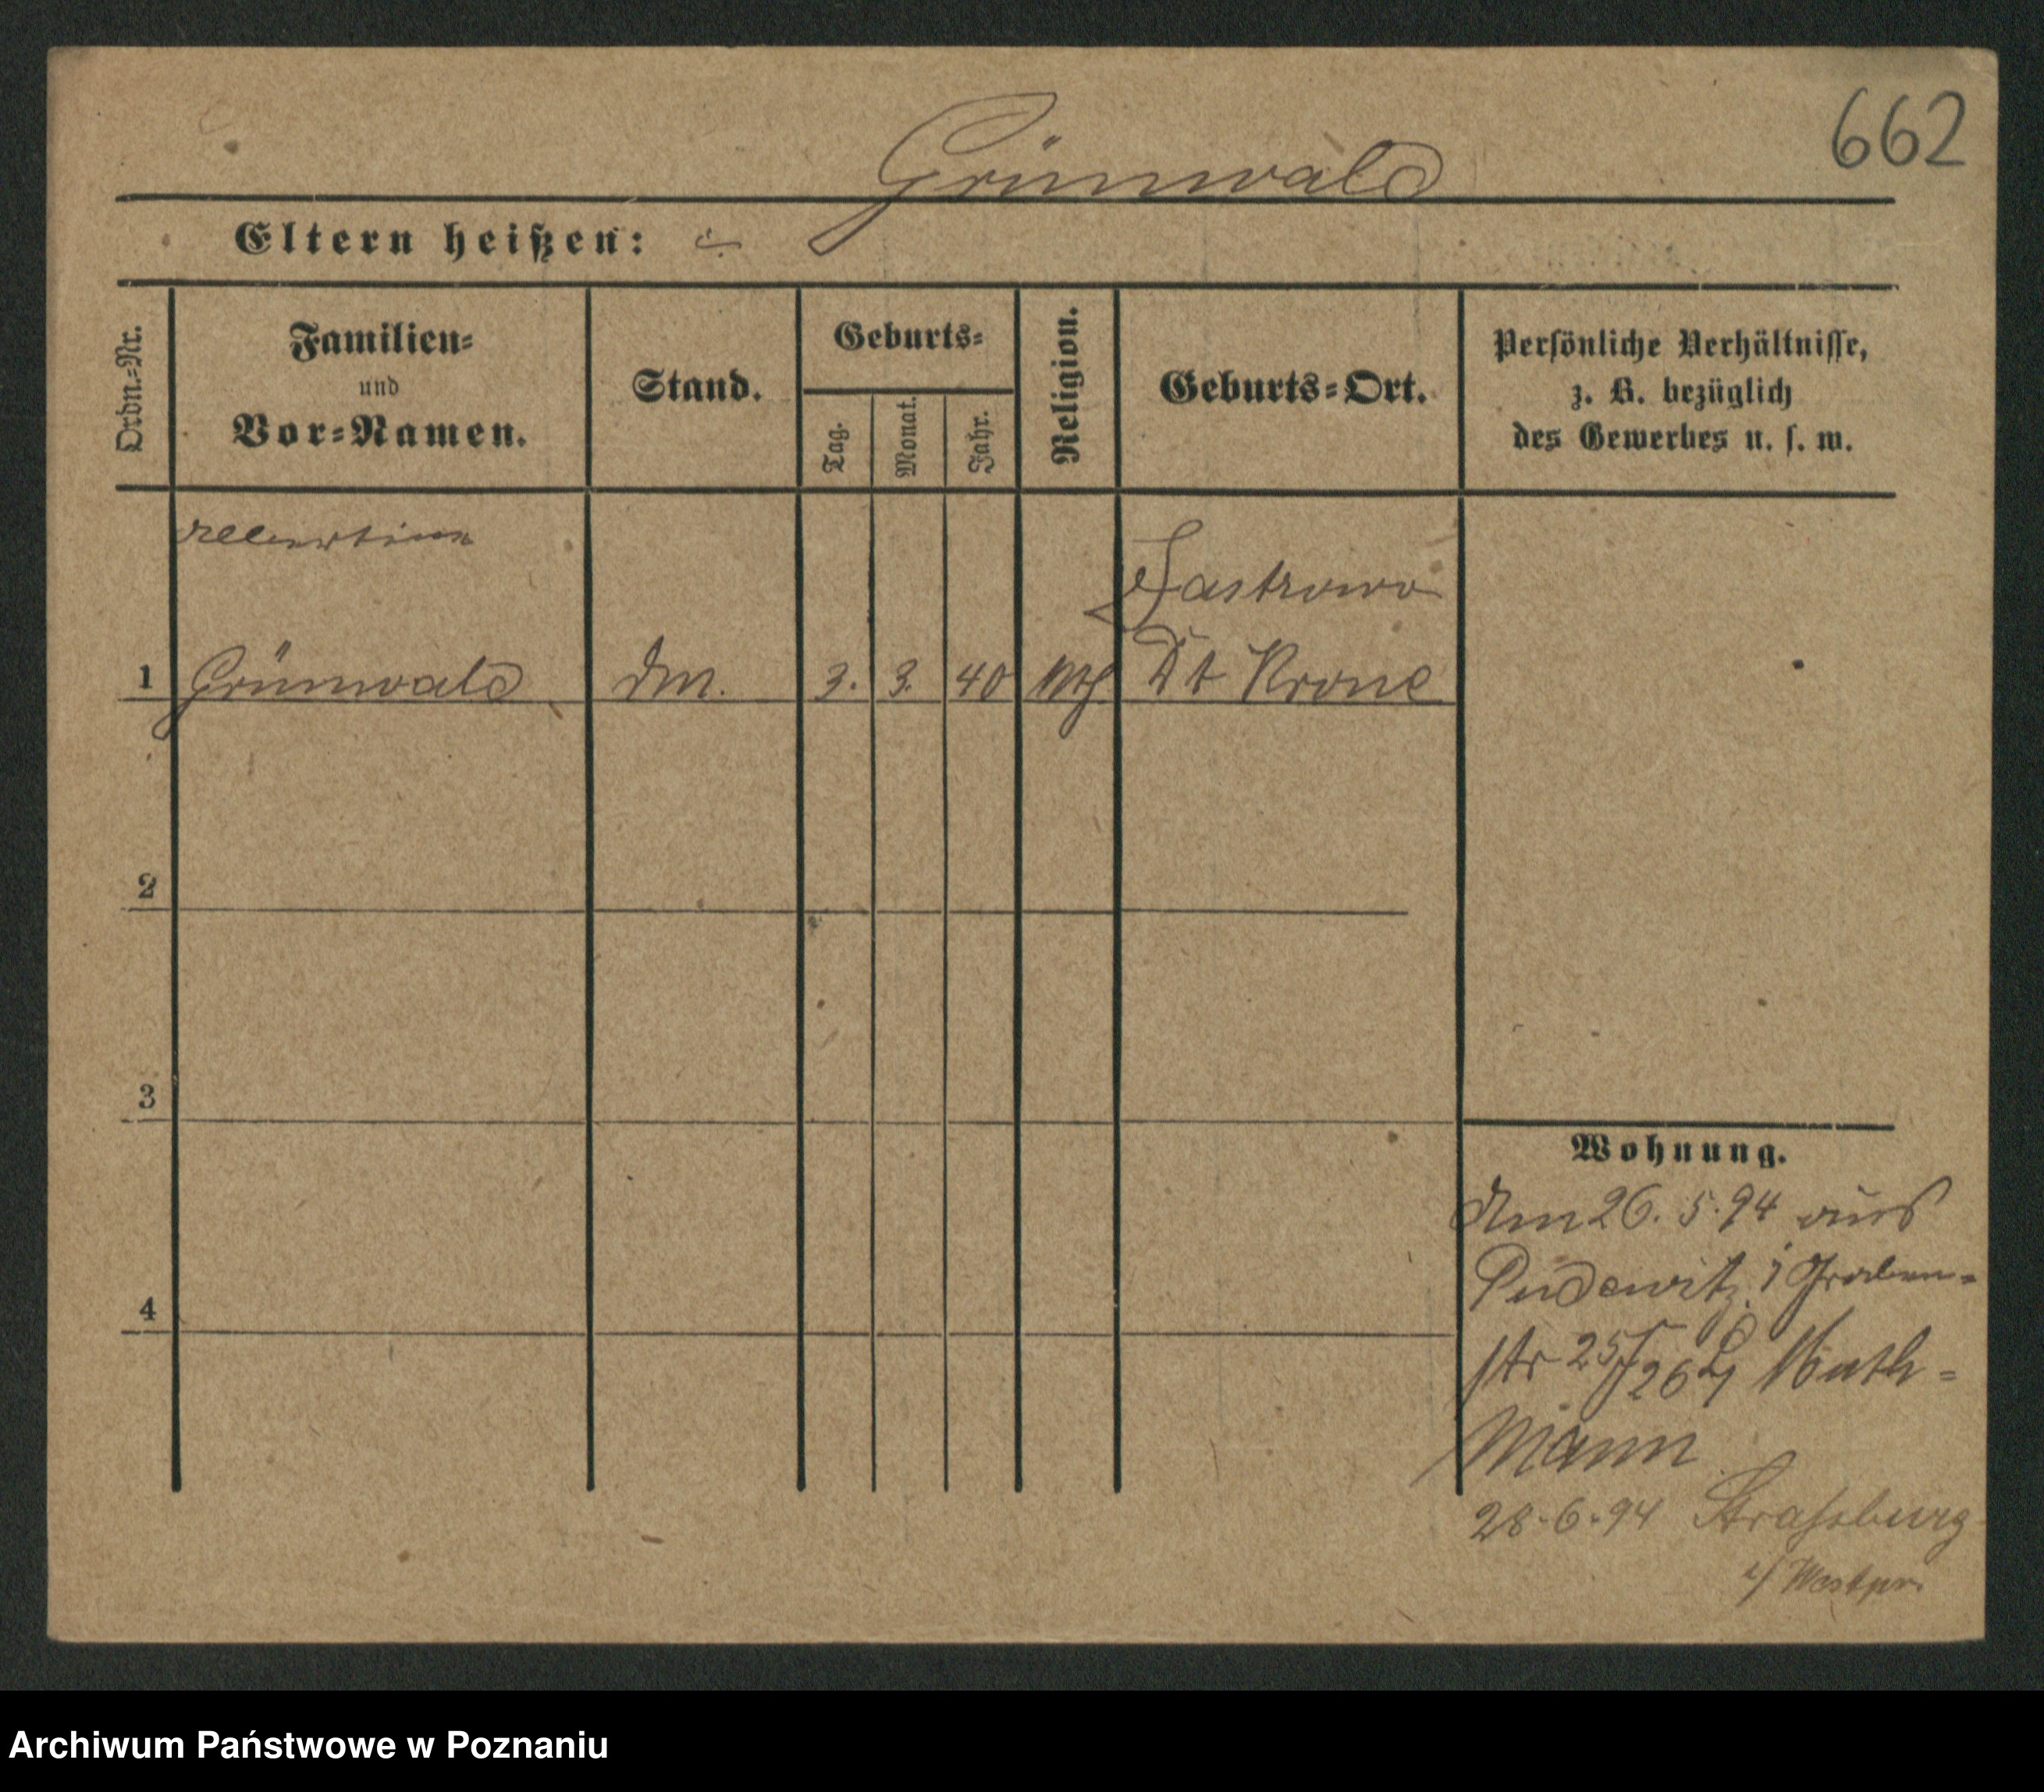 662
Grünwald
Eltern heißen:
Ordn.=Nr.
Familien=
und
Vor=Namen.
Stand.
Geburts=
Tag.
Monat.
Jahr.
Religion.
Geburts=Ort.
Persönliche Verhältnisse,
z. B. bezüglich
des Gewerbes u. s. w.
Jastrowo
1 Grünwald 3. 3. 40 Dt Krone
2
3
4
Wohnung.
Am 26. 5. 94 aus
Pudewitz, Graben=
str 25/26
Mann
28-6-94 Strassburg
i/ Westpr.
Archiwum Państwowe w Poznaniu